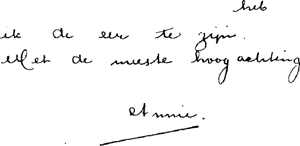 heb
ik de eer te zijn.
Met de meeste hoogachting
Annie.